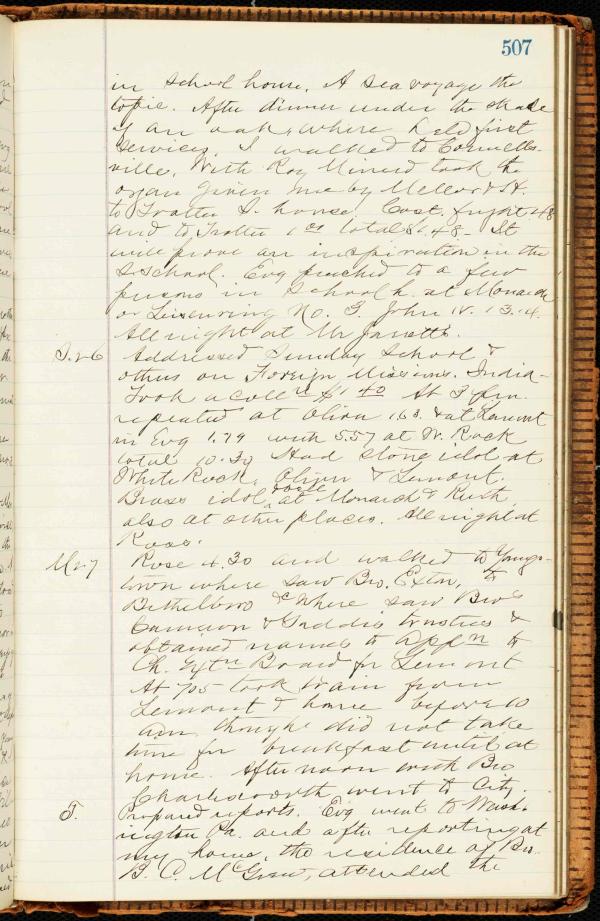 507
in school house. A sea voyage the
topic. After dinner under the shade
of an oak, where held first
services, I walked to Connells-
ville. With Roy Minerd took the
organ given me by Mellor & H.
to Trotter S. house. Cost. freight 48
and to Trotter 1.00 total $1.48 - It
will prove an inspiration in the
S. school. Evg preached to a few
persons in School h. at Monarch
or Leisenring No. 3. John IV. 13.14.
All night at Mr Jarrett's.
S. 26 Addressed Sunday School &
others on Foreign Missions. India -
Took a colln $1.40 At 3 p.m.
repeated at Olive 1.63. & at Lemont
in Evg 1.79 with 5.57 at W. Rock
total 10.39 Had stone idol at
White Rock, & Lemont.
Brass idol at Monarch & Rush
also at other places. All night at
Ross.
M 27 Rose 4.30 and walked to Youngs-
town where saw Bro. Exton, to
Bethelboro &c where saw Bros
Cameron & Gaddis trustees &
obtained names to appn to
Ch. Extn Board for Lemont
At 7.05 took train from
Lemont & home before 10
a.m. though did not take
time for breakfast until at
home. Afternoon with Bro
Charlesworth went to City.
T. Prepared reports. Evg went to Wash-
ington Pa. and after reporting at
my home, the residence of Bro.
B. C. McGrew, attended the